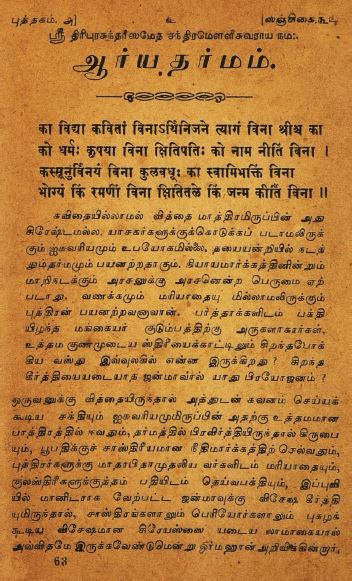 புத்தகம். அ] உ [ஸஞ்சிகை,ந.
ஸ்ரீ திரிபுரசுந்தரீஸமேத சந்திரமௌளீசுவராய நம:.
ஆர்யதர்மம்.
का विद्या कवितां विनाऽर्थिनिजने त्यागं विना श्रीश्च का
को धर्मः कृपया विना क्षितिपतिः को नाम नीतिं विना ।
कस्सूनुर्विनयं विना कुलवधूः का स्वामिभक्तिं विना
भोग्यं किं रमणीं विना क्षितितले किं जन्म कीर्तिं विना ॥
கவிதையில்லாமல் வித்தை மாத்திரமிருப்பின் அது
சிரேஷ்டமல்ல. யாசகர்களுக்குக்கொடுக்கப் படாமலிருக்
கும் ஐசுவரியமும் உபயோகமில்லை. தயையன்றியில் நடத்
தும்தர்மமும் பயனற்றதாகும். நியாயமார்க்கத்தினின்றும்
மாறிநடக்கும் அரசனுக்கு அரசனென்ற பெருமை ஏற்
படாது. வணக்கமும் மரியாதையு மில்லாமலிருக்கும்
புத்திரன் பயனற்றவனாவான். பர்த்தாக்களிடம் பக்தி
யிழந்த மங்கையர் குடும்பத்திற்கு அருகளாகார்கள்.
உத்தம குணமுடைய ஸ்திரீயைக்காட்டிலும் சிறந்தபோக்
கிய வஸ்து இவ்வுலகில் என்ன இருக்கிறது? சிறந்த
கீர்த்தியையடையாத ஜன்மாவால் யாது பிரயோஜனம்?
ஒருவனுக்கு வித்தையிருந்தால் அத்துடன் கவனம் செய்யக்
கூடிய சக்தியும் ஐசுவரியமுமிருப்பின் அதற்கு உத்தமமான
பாத்திரத்தில் ஈவதும், தர்மத்தில் பிரவிர்த்தியிருந்தால் கிருபை
யும், பூபதிக்குச் சாஸ்திரீயமான நீதிமார்க்கத்திற் செல்வதும்,
புத்திரர்களுக்கு மாதாபிதாமுதலிய வர்களிடம் மரியாதையும்,
குலஸ்திரீகளுக்குத்தம் பதியிடம் தெய்வபக்தியும், இப்புவி
யில் மானிடராக வேற்பட்ட ஜன்மாவுக்கு விசேஷ கீர்த்தி
யுமிருந்தால், சாஸ்திரங்களாலும் பெரியோர்களாலும் புகழக்
கூடிய விசேஷமான சிரேயஸ்ஸை யடைய லாமாகையால்
அவ்விதமே இருக்கவேண்டுமென்று ஓர்மஹான் அறிவிக்கின்றார்.
63